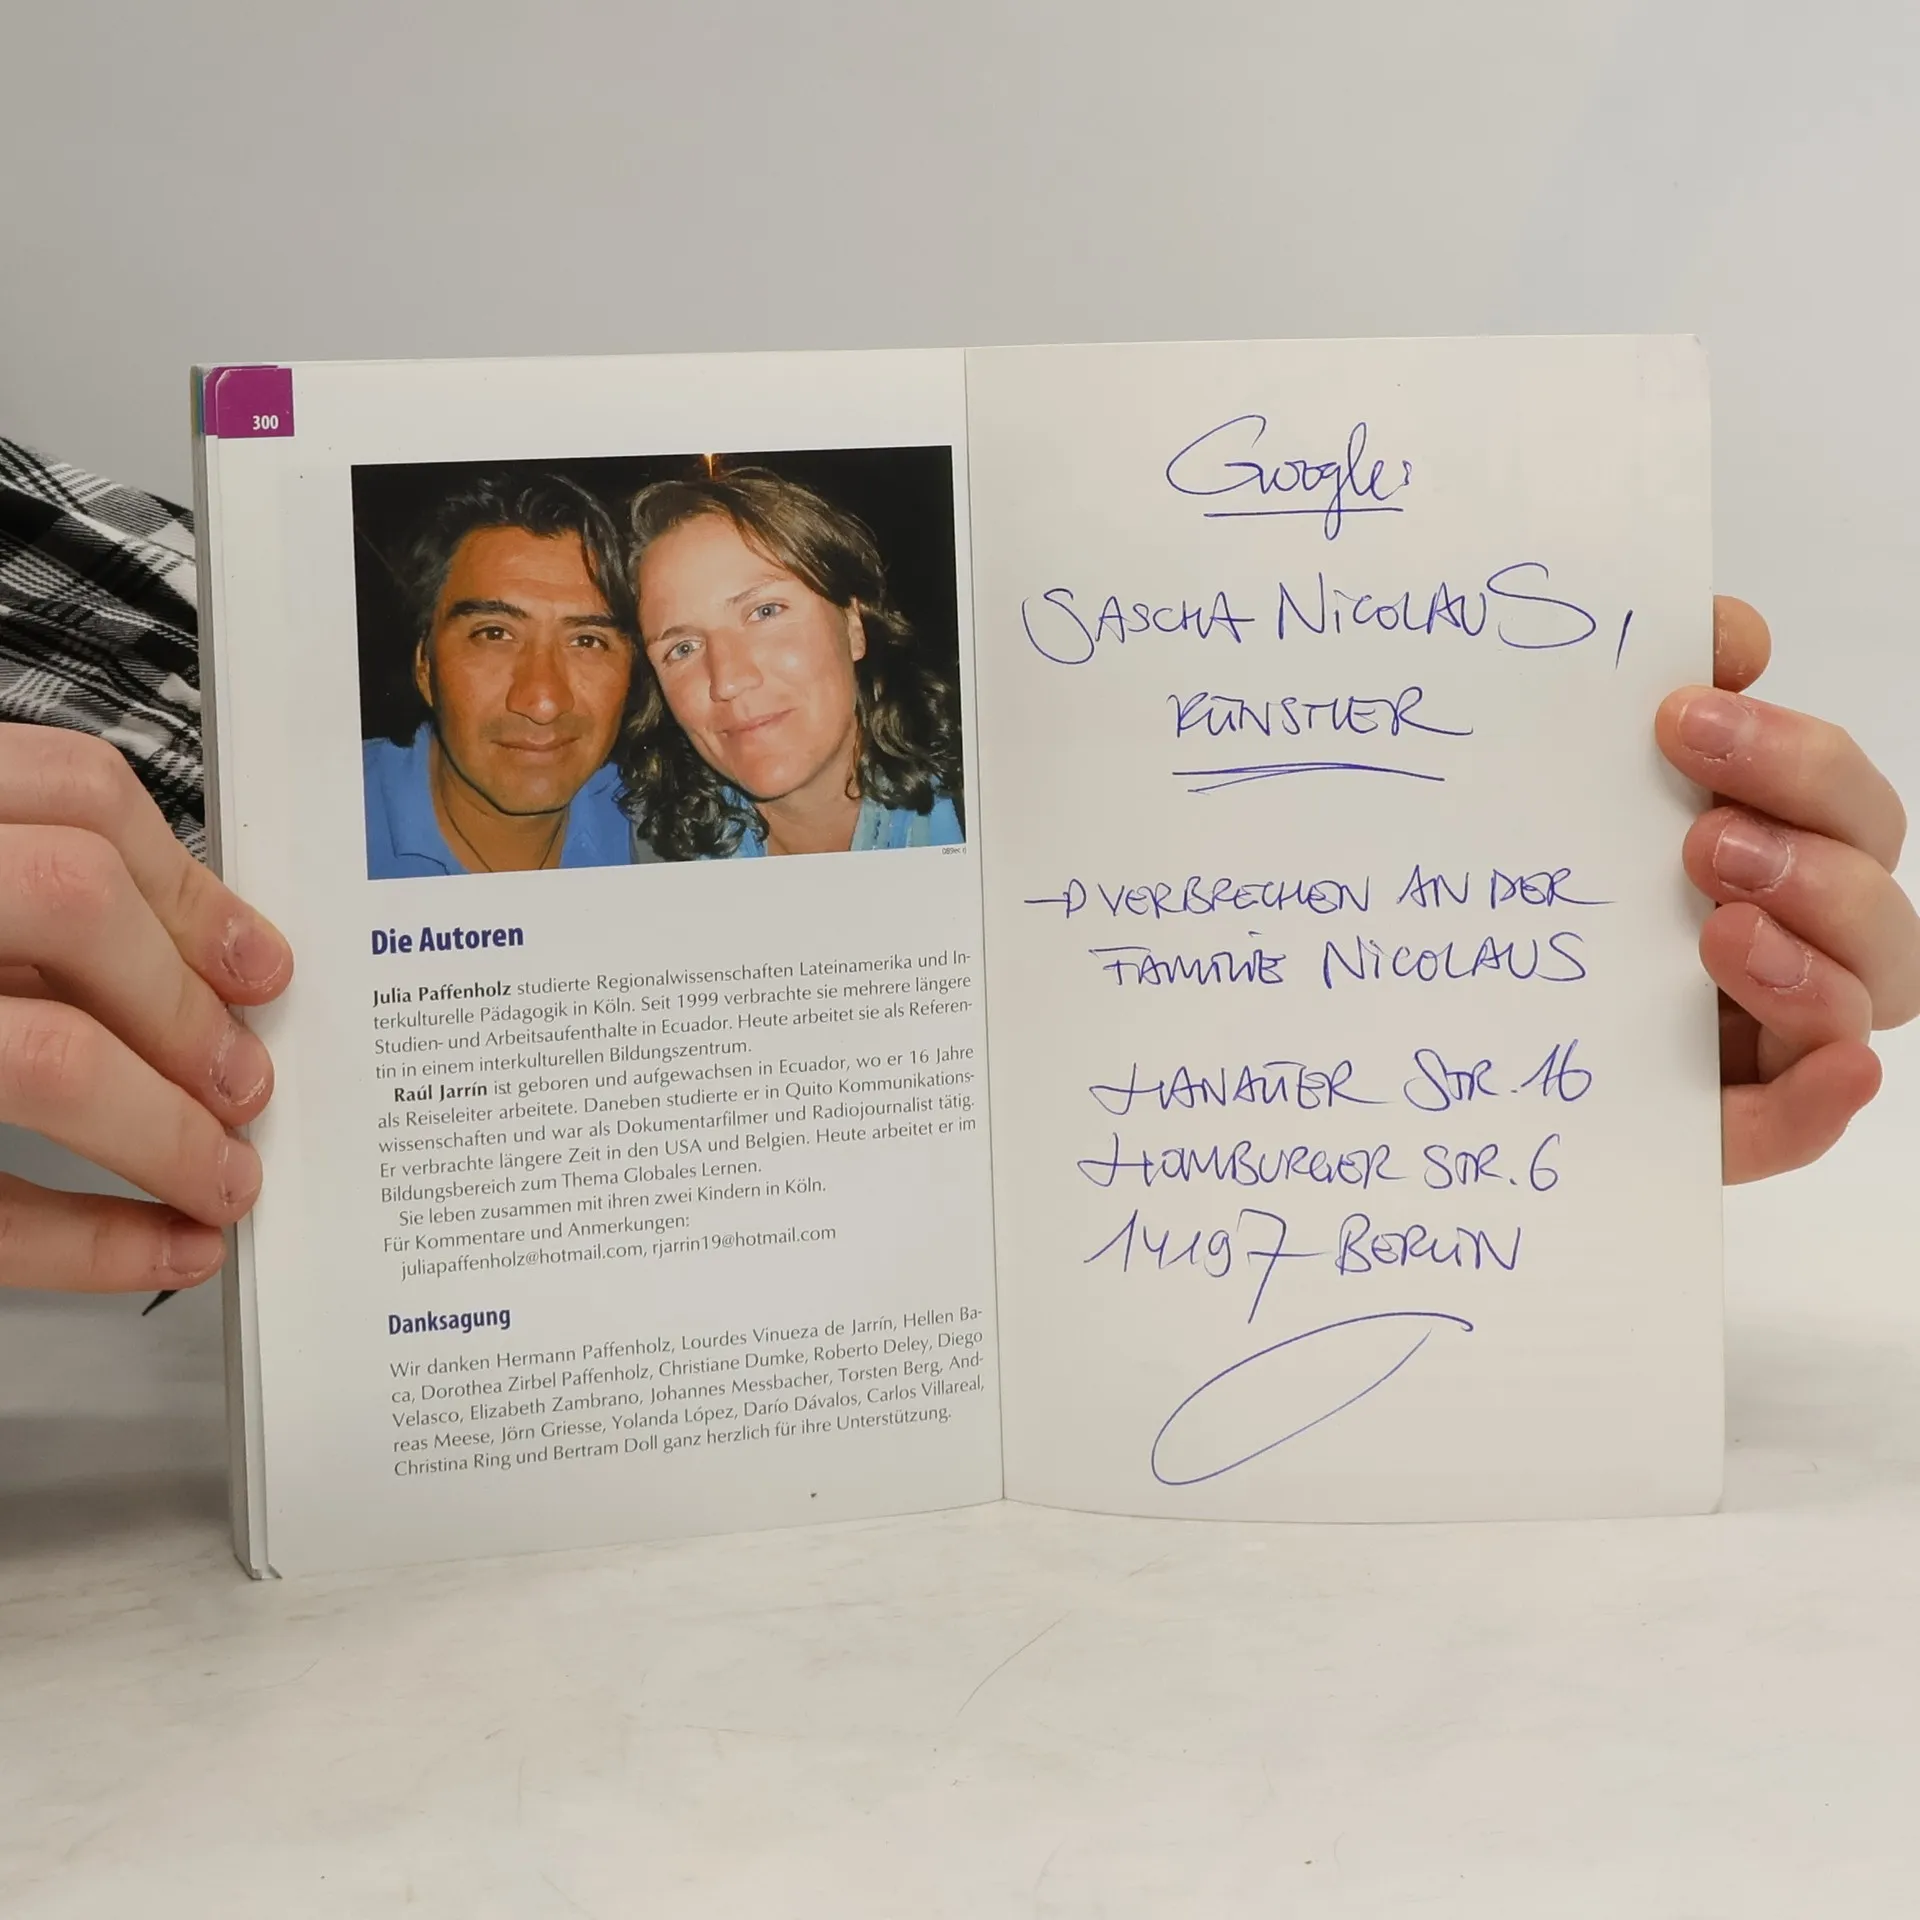 300
Die Autoren
Julia Paffenholz studierte Regionalwissenschaften Lateinamerika und In-
terkulturelle Pädagogik in Köln. Seit 1999 verbrachte sie mehrere längere
Studien- und Arbeitsaufenthalte in Ecuador. Heute arbeitet sie als Referen-
tin in einem interkulturellen Bildungszentrum.
Raúl Jarrín ist geboren und aufgewachsen in Ecuador, wo er 16 Jahre
als Reiseleiter arbeitete. Daneben studierte er in Quito Kommunikations-
wissenschaften und war als Dokumentarfilmer und Radiojournalist tätig.
Er verbrachte längere Zeit in den USA und Belgien. Heute arbeitet er im
Bildungsbereich zum Thema Globales Lernen.
Sie leben zusammen mit ihren zwei Kindern in Köln.
Für Kommentare und Anmerkungen:
juliapaffenholz@hotmail.com, rjarrin19@hotmail.com
Danksagung
Wir danken Hermann Paffenholz, Lourdes Vinueza de Jarrín, Hellen Ba-
ca, Dorothea Zirbel Paffenholz, Christiane Dumke, Roberto Deley, Diego
Velasco, Elizabeth Zambrano, Johannes Messbacher, Torsten Berg, And-
reas Meese, Jörn Griesse, Yolanda López, Darío Dávalos, Carlos Villareal,
Christina Ring und Bertram Doll ganz herzlich für ihre Unterstützung.
Google:
SASCHA NICOLAUS,
KÜNSTLER
→ VERBRECHEN AN DER
FAMILIE NICOLAUS
HANAUER STR. 16
HOMBURGER STR. 6
14197 BERLIN